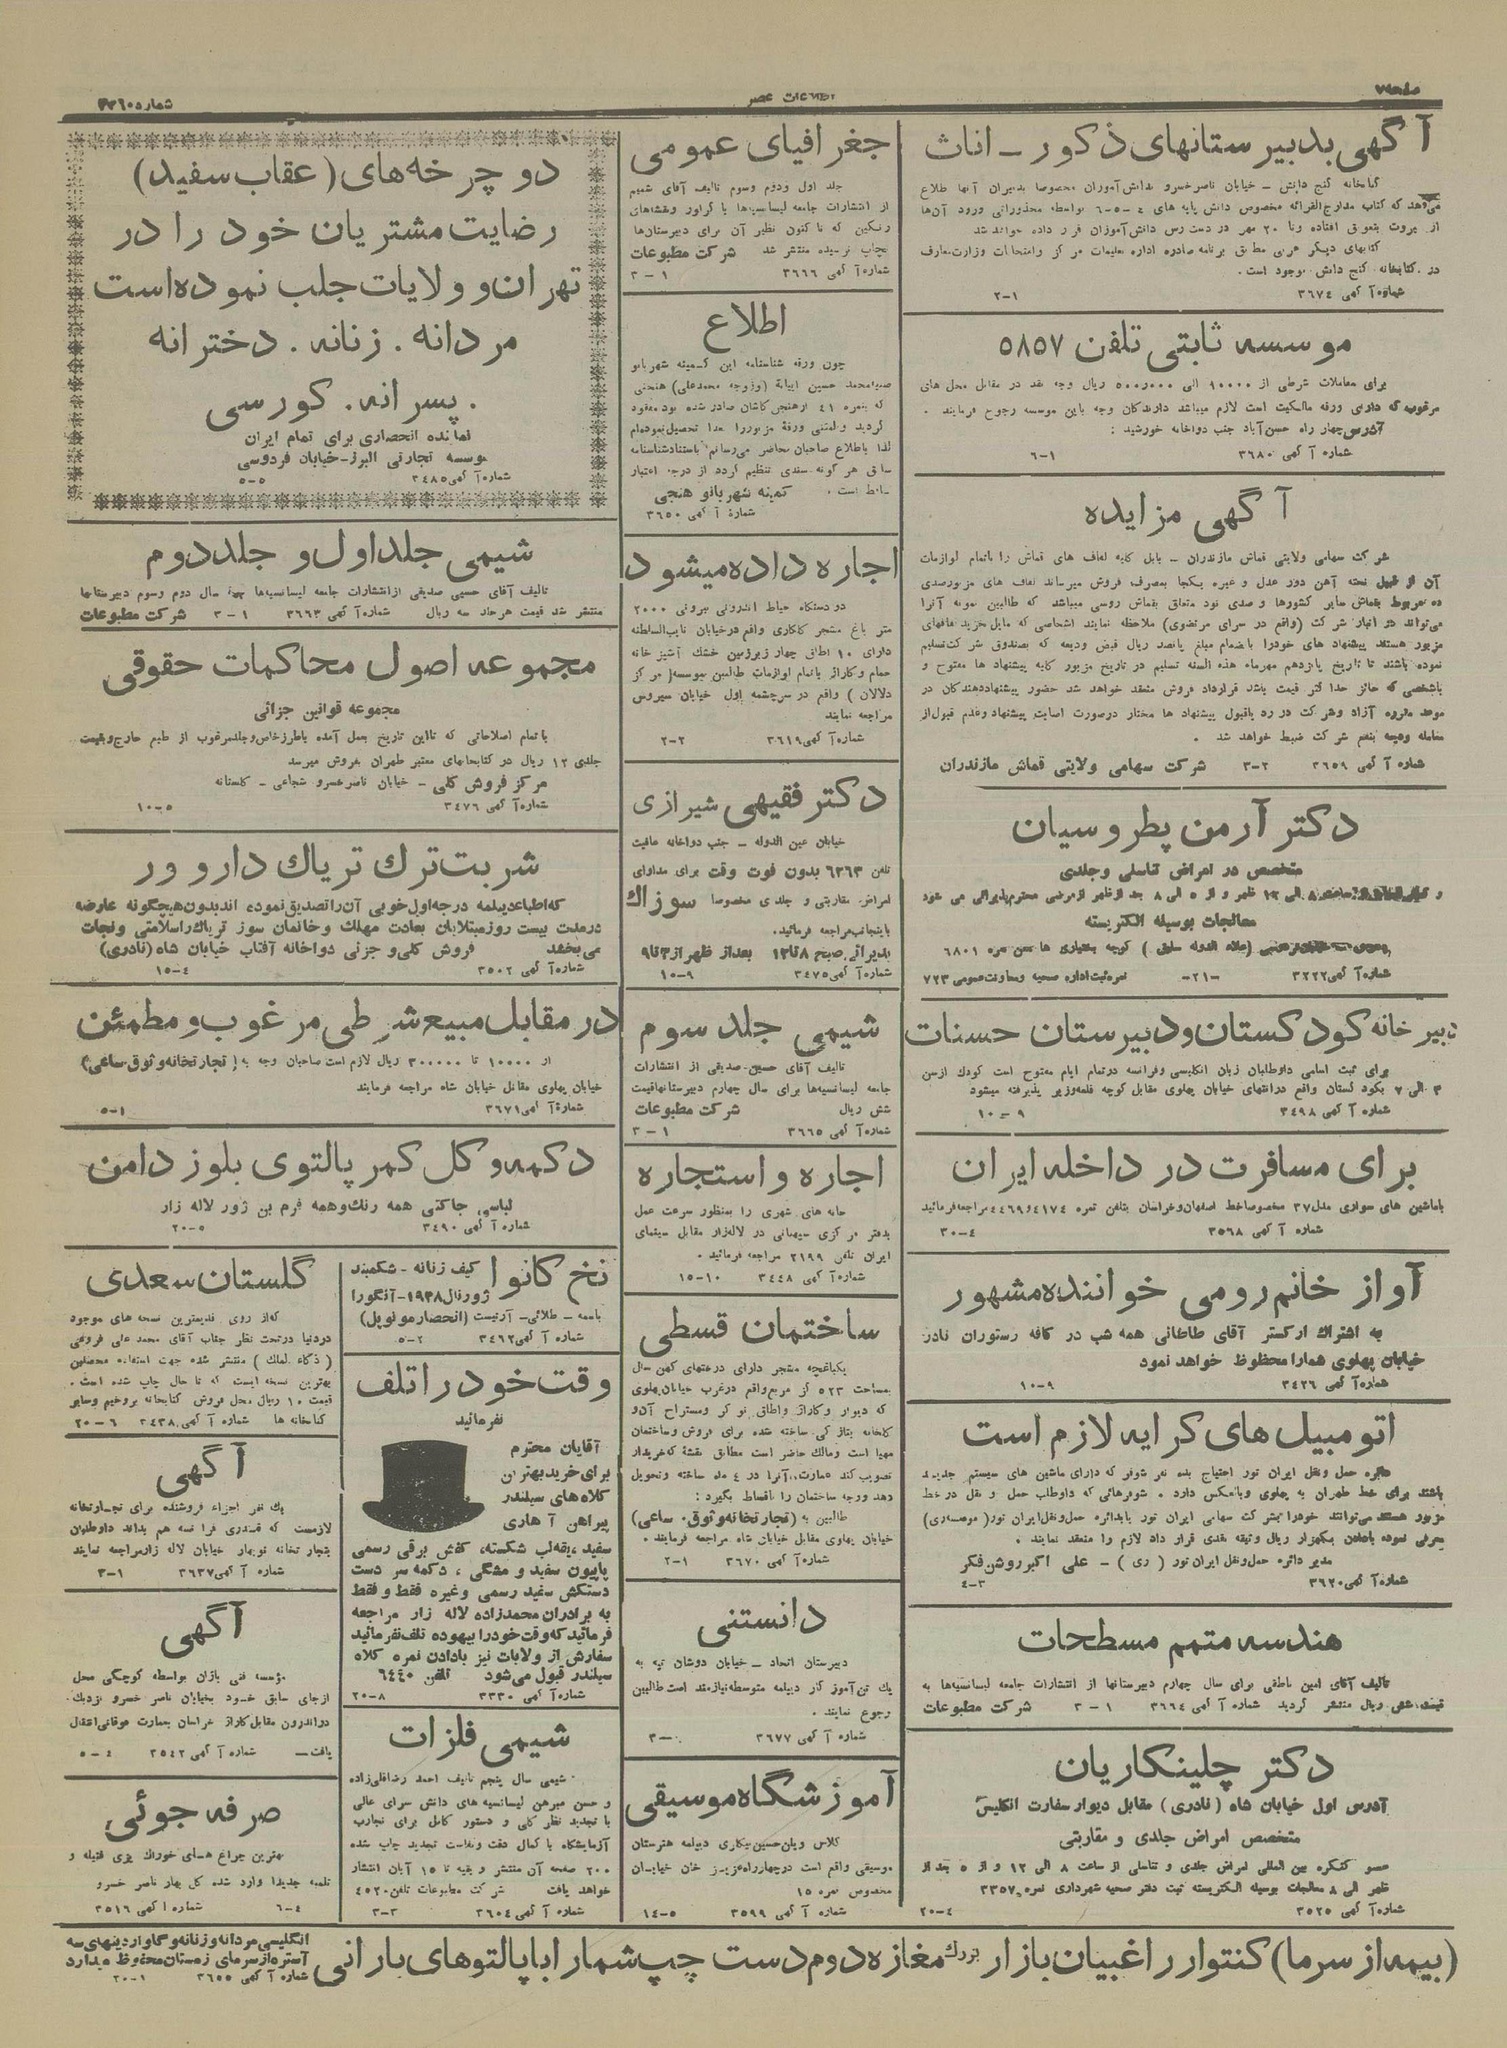 صفحه ۷
اطلاعات عصر
شماره ۳۳۶۰
آگهی بدبیرستانهای ذکور ـ اناث
کتابخانه گنج دانش ـ خیابان ناصرخسرو بدانش‌آموزان مخصوصا بدبیران آنها اطلاع
میدهد که کتاب مدارج القرائه مخصوص دانش پایه های ۴-۵-۶ بواسطه محذوراتی ورود آن‌ها
از بیروت بتعویق افتاده وتا ۲۰ مهر در دست رس دانش‌آموزان قرار داده خواهد شد
کتابهای دیگر عربی مطابق برنامه صادره اداره تعلیمات مرکز وامتحانات وزارت معارف
در کتابخانه گنج دانش موجود است.
شماره آگهی ۳۶۷۴ ۱-۲
موسسه ثابتی تلفن ۵۸۵۷
برای معاملات شرطی از ۱۰۰۰۰ الی ۵۰۰٫۰۰۰ ریال وجه نقد در مقابل محل های
مرغوب که دارای ورقه مالکیت است لازم میباشد دارندگان وجه باین موسسه رجوع فرمایند .
آدرس چهار راه حسن‌آباد جنب دواخانه خورشید :
شماره آگهی ۳۶۸۰ ۱-۶
آگهی مزایده
شرکت سهامی ولایتی قماش مازندران - بابل کلیه لفاف های قماش را باتمام لوازمات
آن از قبیل تخته آهن دور عدل و غیره یکجا بمصرف فروش میرساند لفاف های مزبور صدی
ده مربوط بقماش سایر کشورها و صدی نود متعلق بقماش روسی میباشد که طالبین نمونه آنرا
می‌تواند در انبار شرکت (واقع در سرای مرتضوی) ملاحظه نمایند اشخاصی که مایل خرید لفافهای
مزبور هستند پیشنهاد های خودرا بانضمام مبلغ پانصد ریال قبض ودیعه که بصندوق شرکت تسلیم
نموده باشند تا تاریخ پانزدهم مهرماه هذه السنه تسلیم در تاریخ مزبور کلیه پیشنهاد ها مفتوح و
باشخصی که حائز حداکثر قیمت باشد قرارداد فروش منعقد خواهد شد حضور پیشنهاددهندگان در
موعد مقرره آزاد وشرکت در رد یاقبول پیشنهاد ها مختار درصورت اصابت پیشنهاد وعدم قبول از
معامله ودیعه بنفع شرکت ضبط خواهد شد .
شماره آگهی ۳۶۵۹ ۲-۳ شرکت سهامی ولایتی قماش مازندران
دکتر آرمن پطروسیان
متخصص در امراض تناسلی وجلدی
معالجات بوسیله الکتریسته
شماره آگهی ۳۲۲۲ -۲۱- نمره ثبت اداره صحیه ومعاونت عمومی ۷۲۳
دبیرخانه کودکستان و دبیرستان حسنات
برای ثبت اسامی داوطلبان زبان انگلیسی وفرانسه درتمام ایام مفتوح است کودک ازسن
۳ الی ۷ بکودکستان واقع درانتهای خیابان پهلوی مقابل کوچه قلمه وزیر پذیرفته میشود
شماره آگهی ۳۴۹۸ ۹-۱۰
برای مسافرت در داخله ایران
باماشین های سواری مدل ۳۷ مخصوصا خط اصفهان وخراسان بتلفن نمره ۴۱۷۴و۴۴۶۹ مراجعه فرمائید
شماره آگهی ۳۵۶۸ ۴-۳۰
آواز خانم رومی خواننده مشهور
به اشتراک ارکستر آقای طاطائی همه شب در کافه رستوران نادر
خیابان پهلوی همارا محظوظ خواهد نمود
شماره آگهی ۳۴۲۶ ۹-۱۰
اتومبیل های کرایه لازم است
دائره حمل ونقل ایران تور احتیاج بده نفر شوفر که دارای ماشین های سیستم جدید
باشند برای خط طهران به پهلوی وبالعکس دارد . شوفرهائی که داوطلب حمل و نقل در خط
مزبور هستند می‌توانند خودرا بشرکت سهامی ایران تور یابدائره حمل‌ونقل ایران تور (موصصه ری)
معرفی نموده بادادن یکهزار ریال وثیقه نقدی قرار داد لازم را منعقد نمایند .
مدیر دائره حمل‌ونقل ایران تور (ری) - علی اکبر روشن فکر
شماره آگهی ۳۶۲۰ ۳-۴
هندسه متمم مسطحات
تالیف آقای امین ناطقی برای سال چهارم دبیرستانها از انتشارات جامعه لیسانسیه‌ها به
قیمت شش ریال منتشر گردید شماره آگهی ۳۶۶۴ ۱-۳ شرکت مطبوعات
دکتر چلینگاریان
آدرس اول خیابان شاه (نادری) مقابل دیوار سفارت انگلیس
متخصص امراض جلدی و مقاربتی
عضو کنگره بین المللی امراض جلدی و تناسلی از ساعت ۸ الی ۱۲ و از ۵ بعد از
ظهر الی ۸ معالجات بوسیله الکتریسته ثبت دفتر صحیه شهرداری نمره ۳۳۵۷
شماره آگهی ۳۵۲۵ ۴-۲۰
جغرافیای عمومی
جلد اول ودوم وسوم تالیف آقای شمیم
از انتشارات جامعه لیسانسیه‌ها با گراور ونقشه‌های
رنگین که تاکنون نظیر آن برای دبیرستان‌ها
بچاپ نرسیده منتشر شد شرکت مطبوعات
شماره آگهی ۳۶۶۶ ۱-۳
اطلاع
چون ورقه شناسنامه این کمینه شهربانو
صبیه محمد حسین ابیانه (زوجه محمدعلی) هنجنی
که بنمره ۴۱ ازهنجن کاشان صادر شده بود مفقود
گردید والمثنی ورقه مزبوررا بعدا تحصیل نموده‌ام
لذا باطلاع صاحبان محاضر می‌رسانم باستناد شناسنامه
سابق هر گونه سندی تنظیم گردد از درجه اعتبار
ساقط است . کمینه شهربانو هنجنی
شماره آگهی ۳۶۵۰
اجاره داده میشود
دو دستگاه حیاط اندرونی بیرونی ۲۰۰۰
متر باغ مشجر کالکاری واقع درخیابان نایب‌السلطنه
دارای ۱۰ اطاق چهار زیرزمین خشک آشپز خانه
حمام وگاراژ باتمام لوازمات طالبین بموسسه (مرکز
دلالان) واقع در سرچشمه اول خیابان سیروس
مراجعه نمایند
شماره آگهی ۳۶۱۹ ۲-۲
دکتر فقیهی شیرازی
خیابان عین الدوله - جنب دواخانه عافیت
تلفن ۶۳۶۳ بدون فوت وقت برای مداوای
امراض مقاربتی و جلدی مخصوصا سوزاک
باینجانب مراجعه فرمائید.
پذیرائی صبح ۸تا۱۲ بعداز ظهر از۳تا۹
شماره آگهی ۳۴۷۵ ۹-۱۰
شیمی جلد سوم
تالیف آقای حسین صدیقی از انتشارات
جامعه لیسانسیه‌ها برای سال چهارم دبیرستانها قیمت
شش ریال شرکت مطبوعات
شماره آگهی ۳۶۶۵ ۱-۳
اجاره و استجاره
خانه های شهری را بمنظور سرعت عمل
بدفتر مرکزی سیهانی در لاله‌زار مقابل سینمای
ایران تلفن ۲۱۹۹ مراجعه فرمائید .
شماره آگهی ۳۴۴۸ ۱۰-۱۵
ساختمان قسطی
یکباغچه مشجر دارای درختهای کهن سال
بمساحت ۵۲۳ گز مربع واقع درغرب خیابان پهلوی
که دیوار وگاراژ واطاق نوکر ومستراح آن‌و
گلخانه بتازگی ساخته شده برای فروش وساختمان
مهیا است ومالک حاضر است مطابق نقشه که خریدار
تصویب کند عمارت آنرا در ۴ ماه ساخته وتحویل
دهد ووجه ساختمان را باقساط بگیرد :
طالبین به (تجارتخانه وثوق ساعی)
خیابان پهلوی مقابل خیابان شاه مراجعه فرمایند .
شماره آگهی ۳۶۷۰ ۱-۲
دانستنی
دبیرستان اتحاد - خیابان دوشان تپه به
یک تن‌آموزگار دیپلمه متوسطه نیازمند است طالبین
رجوع نمایند .
شماره آگهی ۳۶۷۷
آموزشگاه موسیقی
کلاس ویلن حسین پیکاری دیپلمه هنرستان
موسیقی واقع است درچهارراه عزیز خان خیابان
مخصوص نمره ۱۵
شماره آگهی ۳۵۹۹ ۵-۱۴
دوچرخه‌های (عقاب سفید)
رضایت مشتریان خود را در
تهران و ولایات جلب نموده است
مردانه . زنانه . دخترانه
. پسرانه . کورسی
نماینده انحصاری برای تمام ایران
موسسه تجارتی البرز-خیابان فردوسی
شماره آگهی ۳۴۸۵ ۵-۵
شیمی جلد اول و جلد دوم
تالیف آقای حسین صدیقی ازانتشارات جامعه لیسانسیه‌ها جهة سال دوم وسوم دبیرستانها
منتشر شد قیمت هرجلد سه ریال شماره آگهی ۳۶۶۳ ۱-۳ شرکت مطبوعات
مجموعه اصول محاکمات حقوقی
مجموعه قوانین جزائی
باتمام اصلاحاتی که تااین تاریخ بعمل آمده باطرز خاص وجلد مرغوب از طبع خارج وبقیمت
جلدی ۱۲ ریال در کتابخانهای معتبر طهران بفروش میرسد
مرکز فروش کلی - خیابان ناصرخسرو شجاعی - گلستانه
شماره آگهی ۳۴۷۶ ۵-۱۰
شربت ترک تریاک دارو ور
که اطباء دیپلمه درجه اول خوبی آن را تصدیق نموده اند بدون هیچگونه عارضه
درمدت بیست روز مبتلایان بعادت مهلک وخانمان سوز تریاک را سلامتی ونجات
می‌بخشد فروش کلی و جزئی دواخانه آفتاب خیابان شاه (نادری)
شماره آگهی ۳۵۰۲ ۴-۱۵
در مقابل مبیع شرطی مرغوب و مطمئن
از ۱۰۰۰۰ تا ۳۰۰۰۰۰ ریال لازم است صاحبان وجه به (تجارتخانه وثوق ساعی)
خیابان پهلوی مقابل خیابان شاه مراجعه فرمایند
شماره آگهی ۳۶۷۱ ۱-۵
دکمه و گل کمر پالتوی بلوز دامن
لباس جاکتی همه رنگ وهمه فرم بن ژور لاله زار
شماره آگهی ۳۴۹۰ ۵-۲۰
نخ کانوا کیف زنانه - شکمبند
ژورنال ۱۹۳۸-آنگورا
باسمه - طلائی - آرتیست (انحصار مونوپل)
شماره آگهی ۳۴۶۲ ۲-۵
وقت خود را تلف
نفرمائید
آقایان محترم
برای خرید بهترین
کلاه های سیلندر
پیراهن آهاری
سفید، یقه‌لب شکسته، کفش برقی رسمی
پاپیون سفید و مشگی ، دکمه سر دست
دستکش سفید رسمی وغیره فقط و فقط
به برادران محمدزاده لاله زار مراجعه
فرمائید که وقت خودرا بیهوده تلف نفرمائید
سفارش از ولایات نیز بادادن نمره کلاه
سیلندر قبول می‌شود تلفن ۶۴۴۰
شماره آگهی ۳۳۳۰ ۸-۲۰
شیمی فلزات
شیمی سال پنجم تالیف احمد رضاقلی‌زاده
و حسن مبرهن لیسانسیه های دانش سرای عالی
با تجدید نظر کلی و دستور کامل برای تجارب
آزمایشگاه با کمال دقت ونفاست تجدید چاپ شده
۲۰۰ صفحه آن منتشر و بقیه تا ۱۵ آبان انتشار
خواهد یافت شرکت مطبوعات تلفن ۴۵۲۰
شماره آگهی ۳۶۰۴ ۳-۳
گلستان سعدی
که‌از روی قدیمترین نسخه های موجود
دردنیا درتحت نظر جناب آقای محمد علی فروغی
(ذکاء الملک) منتشر شده جهت استفاده محصلین
بهترین نسخه ایست که تا حال چاپ شده است .
قیمت ۱۰ ریال محل فروش کتابخانه بروخیم وسایر
کتابخانه ها شماره آگهی ۳۴۳۸ ۶-۲۰
آگهی
یک نفر اجزاء فروشنده برای تجارتخانه
لازمست که قدری فرانسه هم بداند داوطلبان
بتجارتخانه نوبهار خیابان لاله زار مراجعه نمایند
شماره آگهی ۳۶۳۷ ۱-۳
آگهی
مؤسسه فنی باژان بواسطه کوچکی محل
ازجای سابق خود بخیابان ناصر خسرو نزدیک
دراندرون مقابل گاراژ خراسان بعمارت فوقانی انتقال
یافت - شماره آگهی ۳۵۴۲ ۴-۵
صرفه جوئی
بهترین چراغ های خوراک پزی فتیله و
تلمبه جدیدا وارد شده گل بهار ناصر خسرو
شماره آگهی ۳۵۱۶ ۴-۶
(بیمه از سرما) کنتوار راغبیان بازار بزرگ مغازه دوم دست چپ شمارا با پالتوهای بارانی
انگلیسی مردانه وزنانه وگاواردینهای سه
آستره از سرمای زمستان محفوظ میدارد
شماره آگهی ۳۶۵۵ ۱-۲۰